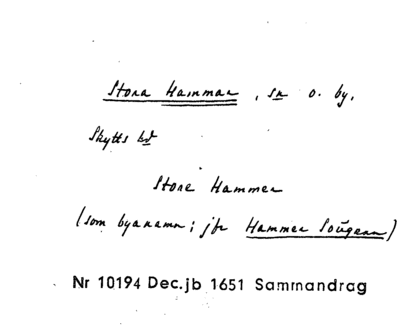 Stora Hammar, sn o. by,
Skytts hd
Store Hammer
(som bynamn; jfr Hammer Sougenn)
Nr 10194 Dec.jb 1651 Sammandrag